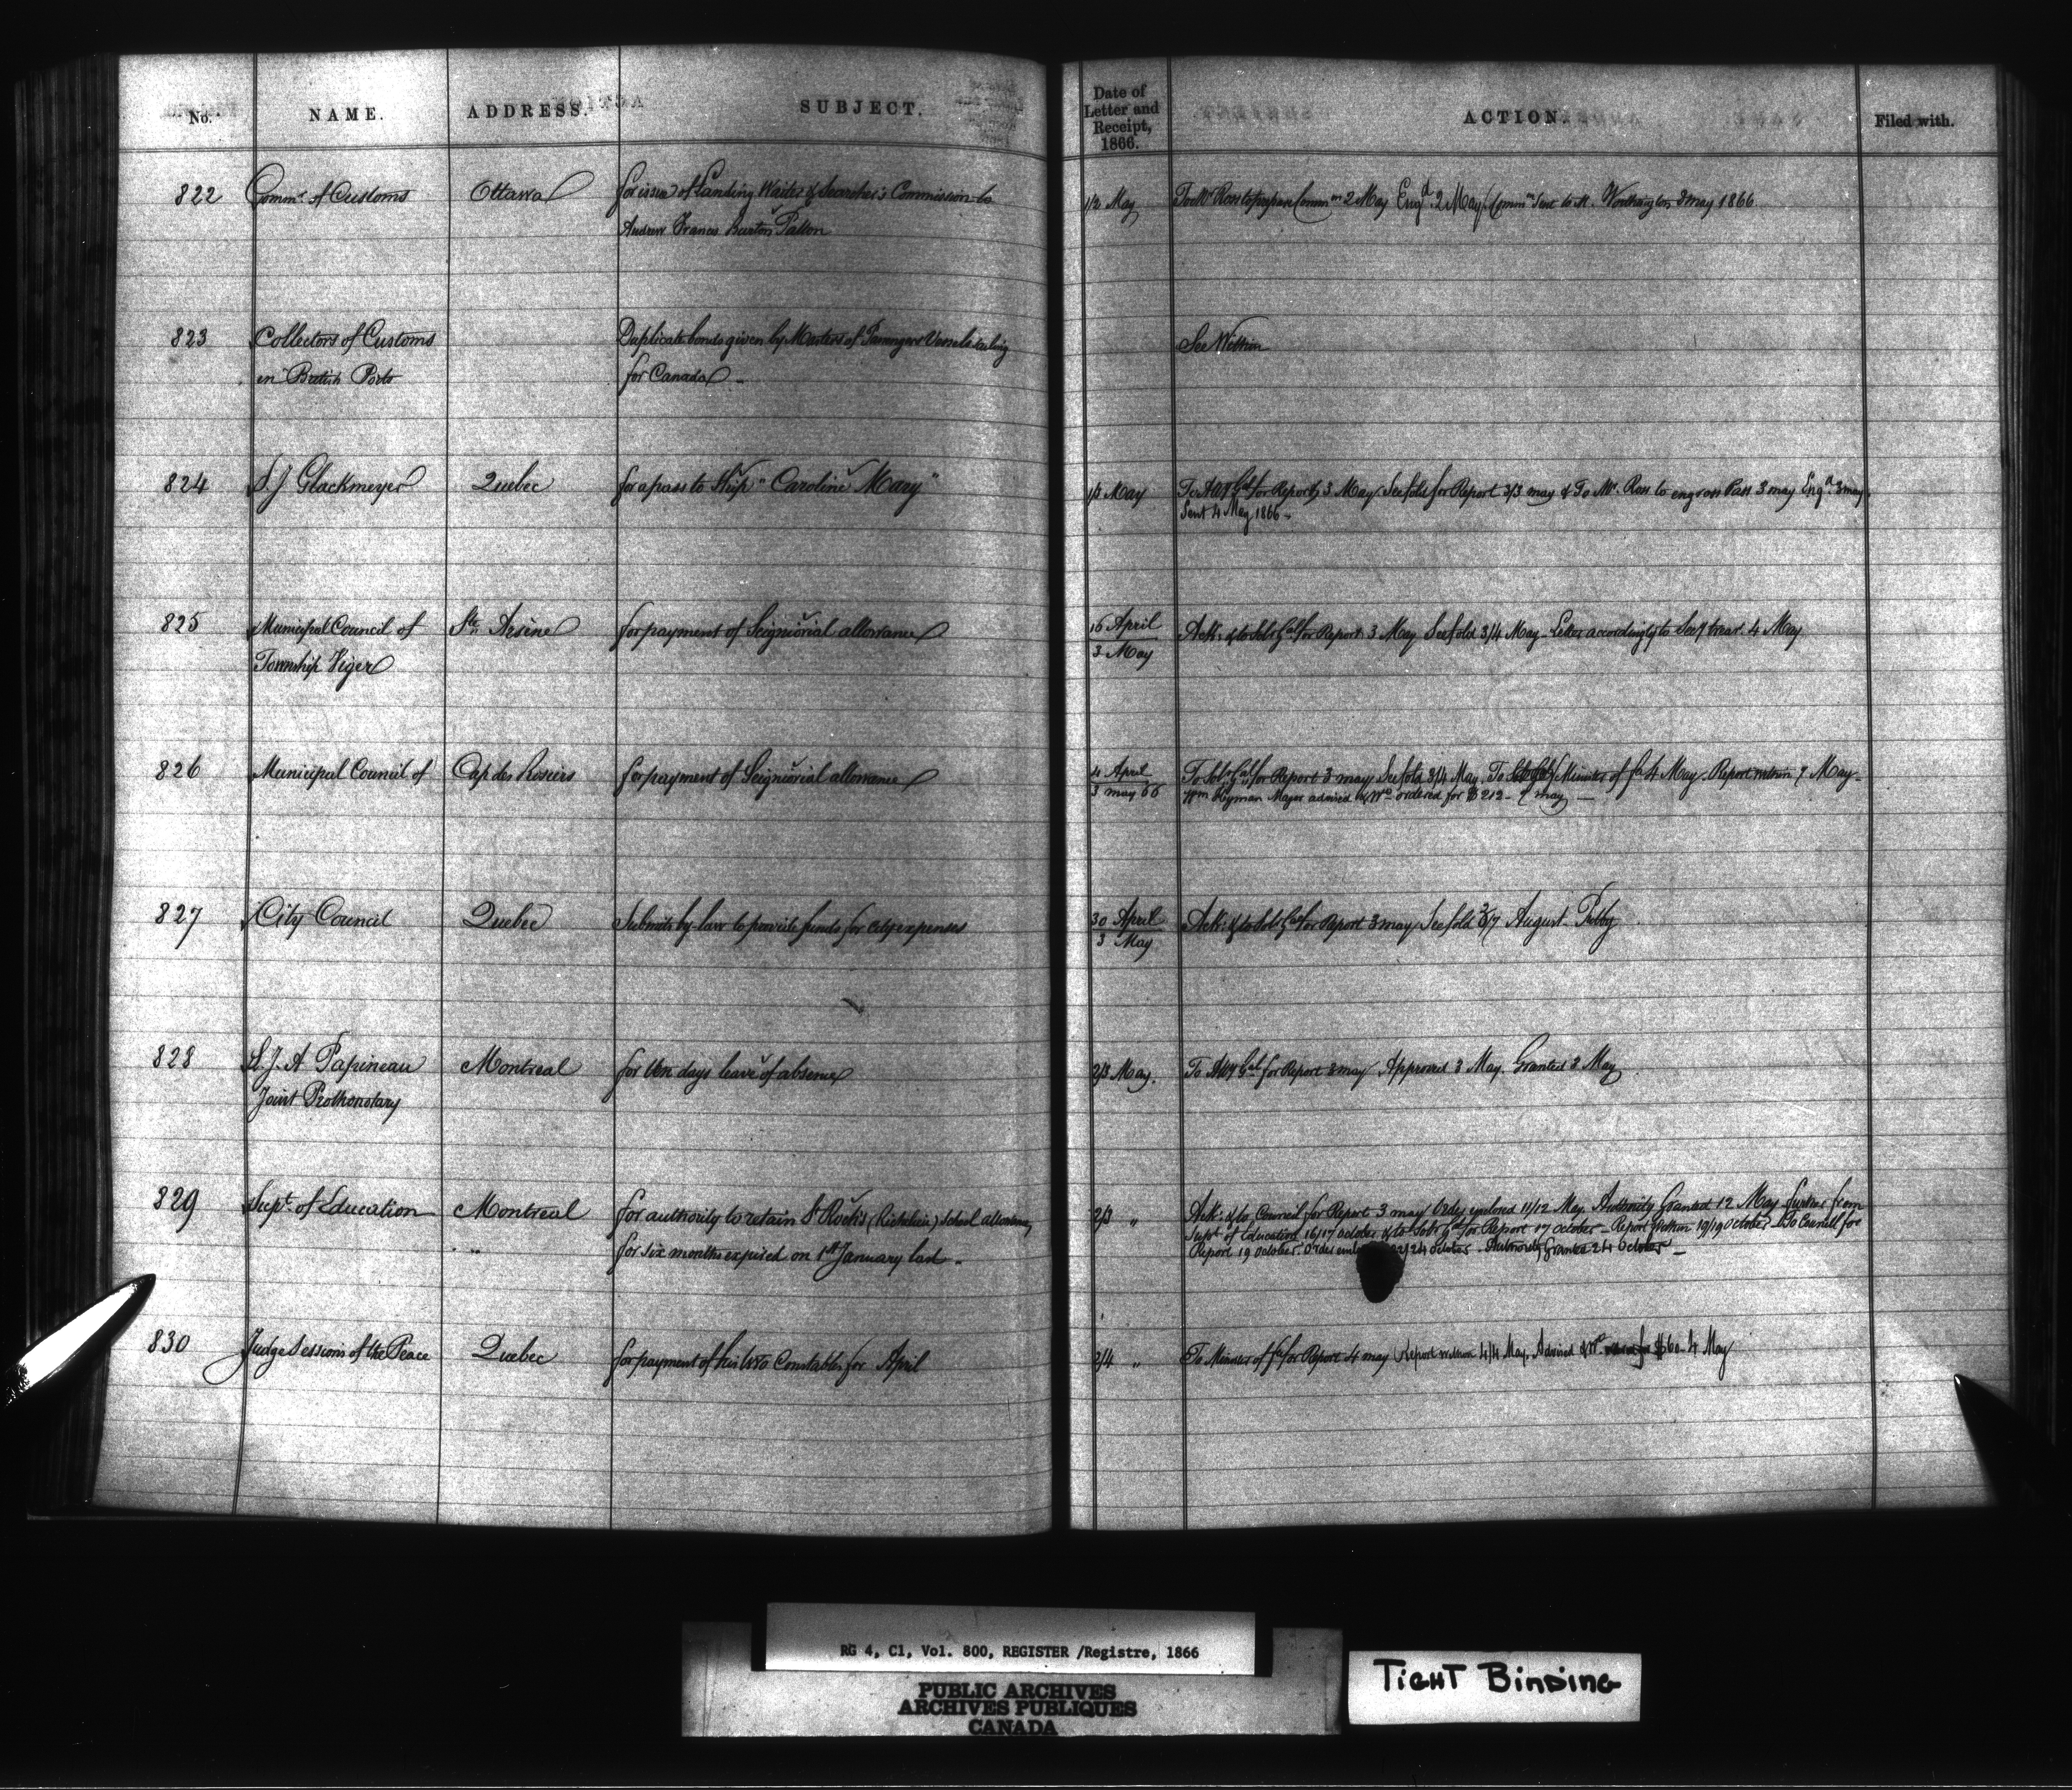 No. NAME. ADDRESS. SUBJECT. Date of Letter and Receipt, 1866. ACTION. Filed with.
822 Commr. of Customs Ottawa for issue of Landing Waiter & Searcher's Commission to 1/2 May To Mr Ross to prepare Commn 2 May Engd. 2 May Commn Sent to M. Worthington 3 May 1866
Andrew Francis Burton Patton
823 Collectors of Customs Duplicate bonds given by Masters of Passengers Vessels sailing See Within
in British Ports for Canada
824 S. J Glackmeyer Quebec for a pass to Ship "Caroline Mary" 1/3 May To Atty Gal for Report 3 May See fold for Report 3/3 may & To Mr. Ross to engross Pass 3 may Engd. 3 may
Sent 4 May 1866 -
825 Municipal Council of Ste. Arsène for payment of Seigniorial allowance 16 April Ack: & to Solr Gal for Report 3 May See fold 3/4 May. Letter accordingly to Secy treasr. 4 May
Township Viger 3 May
826 Municipal Council of Cap des Rosiers for payment of Seigniorial allowance 4 April To Solr Gal for Report 3 may See fold 3/4 May. To Minister of fce 4 May. Report within 7 May -
3 may 66 Wm Hyman Mayor advised & Wt ordered for $212 - 9 may -
827 City Council Quebec Submits by-law to provide funds for city expenses 30 April Ack: & to Solr Gal for Report 3 may See fold 7 August
3 May
828 L. J. A Papineau Montreal for ten days leave of absence 2/3 May. To Atty Gal for Report 3 may Approved 3 May. Granted 3 May
Joint Prothonotary
829 Supt. of Education Montreal for authority to retain St Roch's (Richelieu) School allowance 2/3 " Ack: & to Council for Report 3 may Order enclosed 11/12 May Authority Granted 12 May further from
for six months expired on 1st January last. Supt of Education 16/17 October & to Solr Gal for Report 17 October - Report within 19/19 October - To Council for
Report 19 October. Order 24 October. Authority Granted 24 October -
830 Judge Sessions of the Peace Quebec for payment of his two Constables for April 2/4 " To Minister of fce for Report 4 may Report within 4/4 May. Advised & Wt. for $60 - 4 May
RG 4, C1, Vol. 800, REGISTER /Registre, 1866
PUBLIC ARCHIVES
ARCHIVES PUBLIQUES
CANADA
TIGHT BINDING